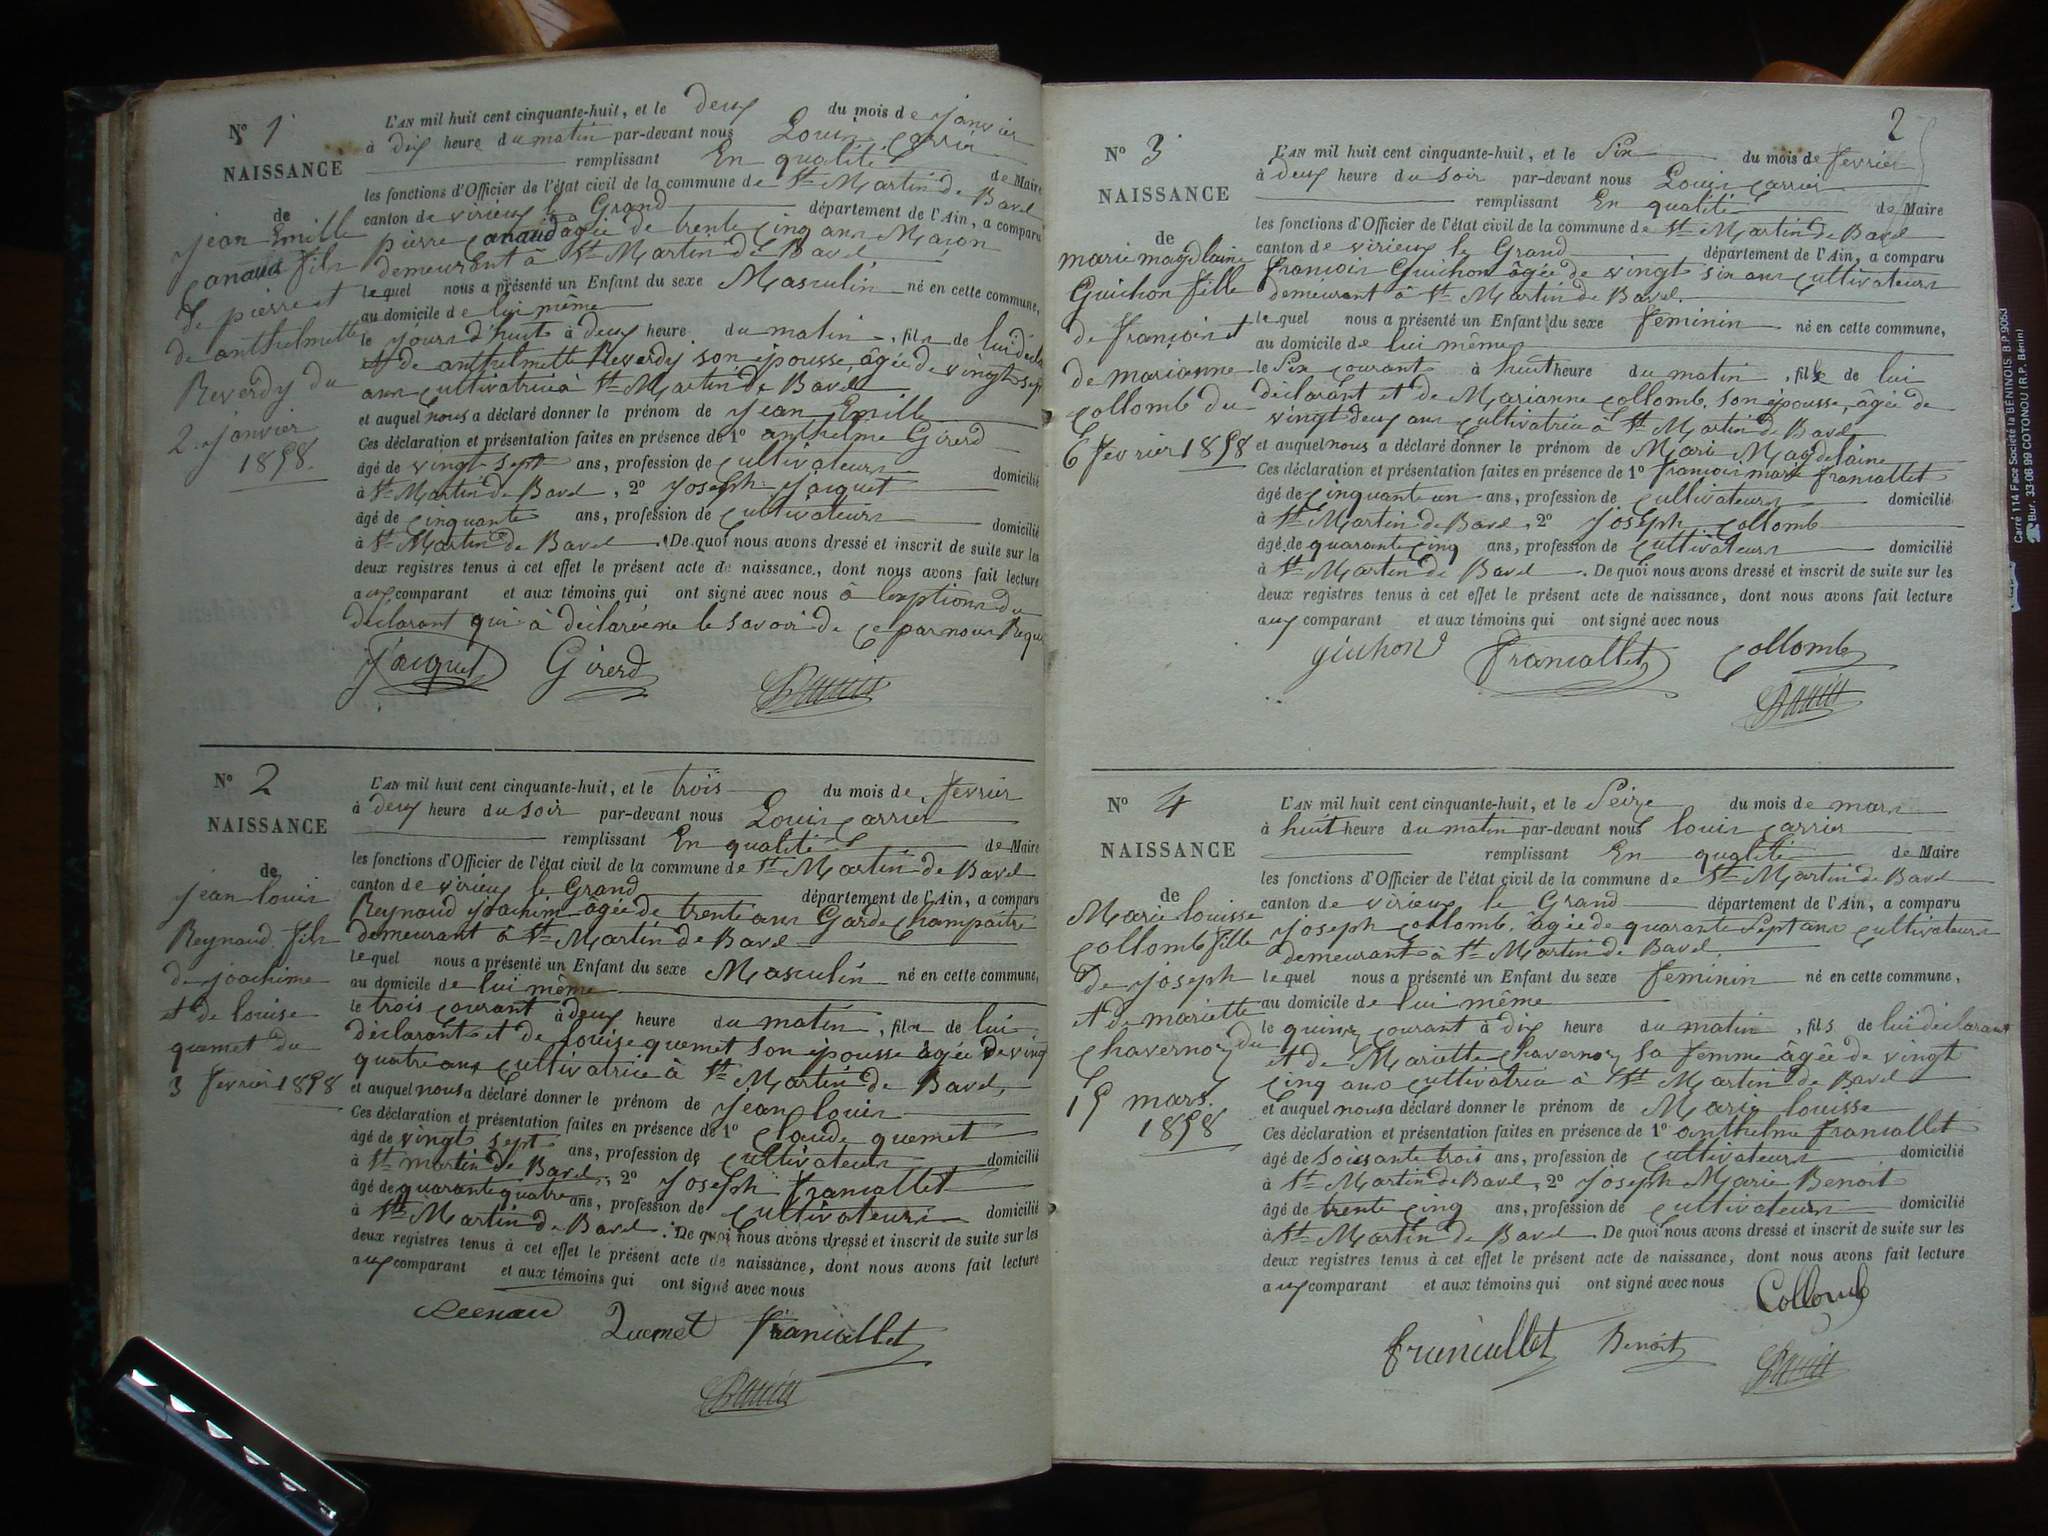 Nº 1
NAISSANCE
de
jean Emille
Canaud fils
de pierre et
de anthelmette
Reverdy du
2 janvier
1858.
L'AN mil huit cent cinquante-huit, et le deux du mois de janvier
à dix heure du matin par-devant nous Louis Carrier
remplissant En qualité de Maire
les fonctions d'Officier de l'état civil de la commune de St Martin de Bavel
canton de virieux le Grand département de l'Ain, a comparu
pierre Canaud agée de trente cinq ans Maçon
demeurant à St Martin de Bavel.
lequel nous a présenté un Enfant du sexe Masculin né en cette commune,
au domicile de lui même
le jours d'huit à deux heure du matin, fils de lui décla
et de anthelmette Reverdy son épouse, âgée de vingt sept
ans cultivatrice à St Martin de Bavel
et auquel nous a déclaré donner le prénom de jean Emille
Ces déclaration et présentation faites en présence de 1º anthelme Girerd
âgé de vingt sept ans, profession de cultivateurs domicilié
à St Martin de Bavel, 2º Joseph Jacquet
âgé de cinquante ans, profession de cultivateurs domicilié
à St Martin de Bavel. De quoi nous avons dressé et inscrit de suite sur les
deux registres tenus à cet effet le présent acte de naissance, dont nous avons fait lecture
aux comparant et aux témoins qui ont signé avec nous à lexptions du
déclarant qui à déclaré ne le savoir de ce par nous Requi
Jacquet Girerd Carrier
Nº 2
NAISSANCE
de
jean louis
Reynaud fils
de joachime
et de louise
quemet du
3 fevrier 1858
L'AN mil huit cent cinquante-huit, et le trois du mois de fevrier
à deux heure du soir par-devant nous Louis Carrier
remplissant En qualité de Maire
les fonctions d'Officier de l'état civil de la commune de St Martin de Bavel
canton de virieux le Grand département de l'Ain, a comparu
Reynaud joachim âgée de trente ans Garde Champaitre
demeurant à St Martin de Bavel
lequel nous a présenté un Enfant du sexe Masculin né en cette commune,
au domicile de lui même
le trois courant à deux heure du matin, fils de lui
déclarant et de louise quemet son épouse âgée de vingt
quatre ans cultivatrice à St Martin de Bavel,
et auquel nous a déclaré donner le prénom de jean louis
Ces déclaration et présentation faites en présence de 1º Claude quemet
âgé de vingt sept ans, profession de cultivateurs domicilié
à St martin de Bavel, 2º Joseph Francallet
âgé de quarante quatre ans, profession de cultivateurs domicilié
à St Martin de Bavel. De quoi nous avons dressé et inscrit de suite sur les
deux registres tenus à cet effet le présent acte de naissance, dont nous avons fait lecture
aux comparant et aux témoins qui ont signé avec nous
Quemet Francallet
Carrier
2
Nº 3
NAISSANCE
de
marie magdlaine
Guichon fille
de françois et
de marianne
collomb du
6 fevrier 1858
L'AN mil huit cent cinquante-huit, et le Six du mois de fevrier
à deux heure du soir par-devant nous Louis Carrier
remplissant En qualité de Maire
les fonctions d'Officier de l'état civil de la commune de St Martin de Bavel
canton de virieux le Grand département de l'Ain, a comparu
françois Guichon âgée de vingt six ans cultivateurs
demeurant à St Martin de Bavel.
lequel nous a présenté un Enfant du sexe feminin né en cette commune,
au domicile de lui même
le Six courant à huit heure du matin, fille de lui
déclarant et de Marianne collomb. son épouse, âgée de
vingt deux ans cultivatrice à St Martin de Bavel
et auquel nous a déclaré donner le prénom de Marie Magdelaine
Ces déclaration et présentation faites en présence de 1º françois marie francallet
âgé de cinquante un ans, profession de cultivateurs domicilié
à St Martin de Bavel, 2º Joseph collomb
âgé de quarante cinq ans, profession de cultivateurs domicilié
à St Martin de Bavel. De quoi nous avons dressé et inscrit de suite sur les
deux registres tenus à cet effet le présent acte de naissance, dont nous avons fait lecture
aux comparant et aux témoins qui ont signé avec nous
guichon francallet Collomb
Carrier
Nº 4
NAISSANCE
de
Marie louisse
collomb fille
de joseph
et de mariette
chavernoz du
15 mars.
1858
L'AN mil huit cent cinquante-huit, et le Seize du mois de mars
à huit heure du matin par-devant nous louis carrier
remplissant En qualité de Maire
les fonctions d'Officier de l'état civil de la commune de St Martin de Bavel
canton de virieux le Grand département de l'Ain, a comparu
joseph collomb. âgée de quarante Sept ans cultivateurs
demeurant à St Martin de Bavel,
lequel nous a présenté un Enfant du sexe feminin né en cette commune,
au domicile de lui même
le quinze courant à dix heure du matin, fils de lui déclarant
et de Mariette chavernoz sa femme âgée de vingt
cinq ans cultivatrice à St Martin de Bavel
et auquel nous a déclaré donner le prénom de Marie louisse
Ces déclaration et présentation faites en présence de 1º anthelme francallet
âgé de soissante trois ans, profession de cultivateurs domicilié
à St Martin de Bavel, 2º Joseph Marie Benoit
âgé de trente cinq ans, profession de cultivateurs domicilié
à St Martin de Bavel De quoi nous avons dressé et inscrit de suite sur les
deux registres tenus à cet effet le présent acte de naissance, dont nous avons fait lecture
aux comparant et aux témoins qui ont signé avec nous
Collomb
francallet Benoit
Carrier
Carré 114 Face Société la BENINOIS. B.P. 9053
Bur. 33-06 99 COTONOU (R.P. Bénin)